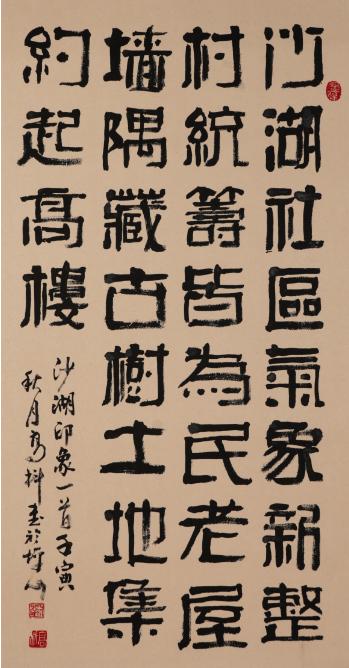 沙湖社區氣象新整
村統籌皆為民老屋
墻隅藏古樹土地集
約起高樓
沙湖印象一首壬寅
秋月